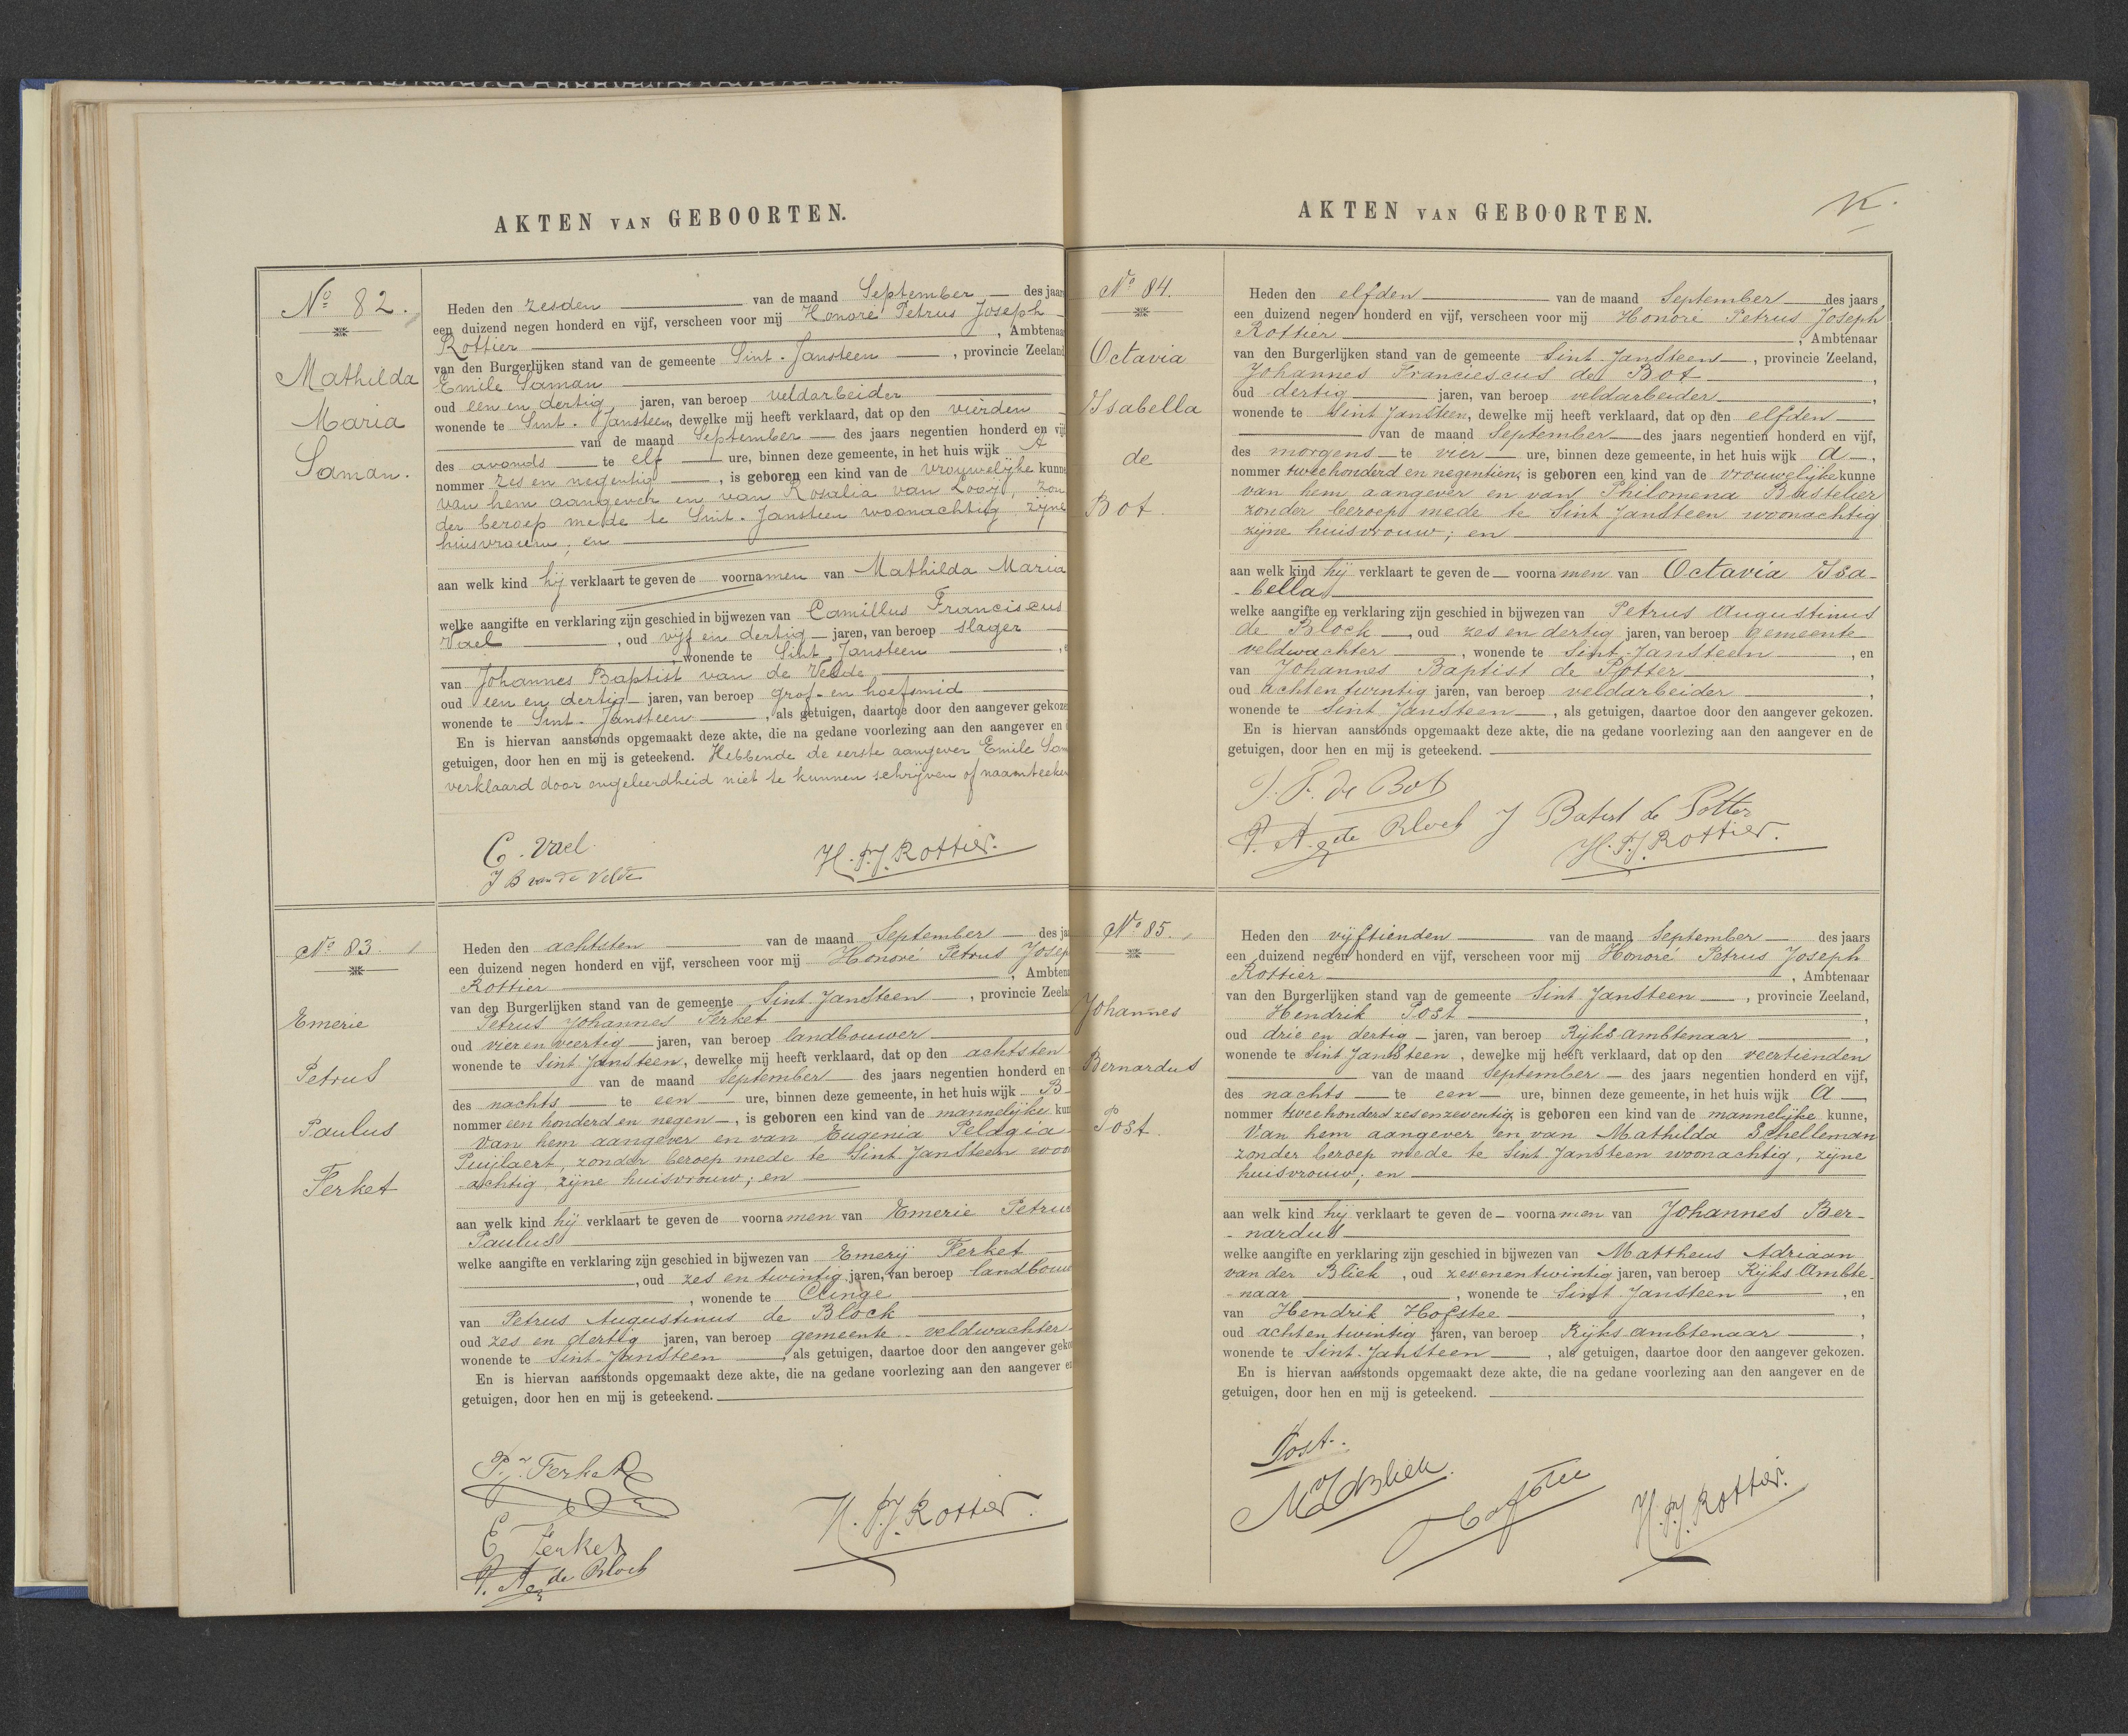 AKTEN VAN GEBOORTEN.
No 82.
Mathilda
Maria
Saman.
Heden den zesden van de maand September des jaars
een duizend negen honderd en vijf, verscheen voor mij Honoré Petrus Joseph
Rottier, Ambtenaar
van den Burgerlijken stand van de gemeente Sint-Jansteen, provincie Zeeland
Emile Saman
oud een en dertig jaren, van beroep veldarbeider
wonende te Sint-Jansteen, dewelke mij heeft verklaard, dat op den vierden
van de maand September des jaars negentien honderd en vijf
des avonds te elf ure, binnen deze gemeente, in het huis wijk A
nommer zes en negentig, is geboren een kind van de vrouwelijke kunne
van hem aangever en van Rosalia van Looij, zon
der beroep mede te Sint-Jansteen woonachtig, zijne
huisvrouw; en
aan welk kind hij verklaart te geven de voornamen van Mathilda Maria
welke aangifte en verklaring zijn geschied in bijwezen van Camillus Franciscus
Vael, oud vijf en dertig jaren, van beroep slager
, wonende te Sint Jansteen
van Johannes Baptist van de Velde
oud een en dertig jaren, van beroep grof- en hoefsmid
wonende te Sint-Jansteen, als getuigen, daartoe door den aangever gekoze
En is hiervan aanstonds opgemaakt deze akte, die na gedane voorlezing aan den aangever en
getuigen, door hen en mij is geteekend. Hebbende de eerste aangever Emile Sam
verklaard door ongeleerdheid niet te kunnen schrijven of naamteeken
C. Vael
J B van de Velde
H. P. J. Rottier.
No 83.
Emerie
Petrus
Paulus
Ferket
Heden den achtsten van de maand September des ja
een duizend negen honderd en vijf, verscheen voor mij Honoré Petrus Josep
Rottier, Ambten
van den Burgerlijken stand van de gemeente Sint Jansteen, provincie Zeela
Petrus Johannes Ferket
oud vier en veertig jaren, van beroep landbouwer
wonende te Sint Jansteen, dewelke mij heeft verklaard, dat op den achtsten
van de maand September des jaars negentien honderd en
des nachts te een ure, binnen deze gemeente, in het huis wijk B
nommer een honderd en negen, is geboren een kind van de mannelijke kun
van hem aangever en van Eugenia Pelagia
Puijlaert, zonder beroep mede te Sint Jansteen woon
-achtig, zijne huisvrouw; en
aan welk kind hij verklaart te geven de voornamen van Emerie Petrus
Paulus
welke aangifte en verklaring zijn geschied in bijwezen van Emerij Ferket
, oud zes en twintig jaren, van beroep landbouw
, wonende te Clinge
van Petrus Augustinus de Block
oud zes en dertig jaren, van beroep gemeente-veldwachter
wonende te Sint-Jansteen, als getuigen, daartoe door den aangever geko
En is hiervan aanstonds opgemaakt deze akte, die na gedane voorlezing aan den aangever en
getuigen, door hen en mij is geteekend.
P. J. Ferket
E Ferket
P. A. de Block
H. P. J. Rottier.
AKTEN VAN GEBOORTEN.
No 84.
Octavia
Isabella
de
Bot.
Heden den elfden van de maand September des jaars
een duizend negen honderd en vijf, verscheen voor mij Honoré Petrus Joseph
Rottier, Ambtenaar
van den Burgerlijken stand van de gemeente Sint Jansteen, provincie Zeeland,
Johannes Franciescus de Bot,
oud dertig jaren, van beroep veldarbeider,
wonende te Sint Jansteen, dewelke mij heeft verklaard, dat op den elfden
van de maand September des jaars negentien honderd en vijf,
des morgens te vier ure, binnen deze gemeente, in het huis wijk A,
nommer tweehonderd en negentien, is geboren een kind van de vrouwelijke kunne
van hem aangever en van Philomena Bastelier
zonder beroep mede te Sint Jansteen woonachtig
zijne huisvrouw; en
aan welk kind hij verklaart te geven de voornamen van Octavia Isa-
-bella
welke aangifte en verklaring zijn geschied in bijwezen van Petrus Augustinus
de Block, oud zes en dertig jaren, van beroep gemeente
veldwachter, wonende te Sint-Jansteen, en
van Johannes Baptist de Potter,
oud achtentwintig jaren, van beroep veldarbeider,
wonende te Sint Jansteen, als getuigen, daartoe door den aangever gekozen.
En is hiervan aanstonds opgemaakt deze akte, die na gedane voorlezing aan den aangever en de
getuigen, door hen en mij is geteekend.
J. F. de Bot
P. A. de Block J Batist de Potter
H. P. J. Rottier.
No 85.
Johannes
Bernardus
Post.
Heden den vijftienden van de maand September des jaars
een duizend negen honderd en vijf, verscheen voor mij Honoré Petrus Joseph
Rottier, Ambtenaar
van den Burgerlijken stand van de gemeente Sint Jansteen, provincie Zeeland,
Hendrik Post,
oud drie en dertig jaren, van beroep Rijks ambtenaar,
wonende te Sint Jansteen, dewelke mij heeft verklaard, dat op den veertienden
van de maand September des jaars negentien honderd en vijf,
des nachts te een ure, binnen deze gemeente, in het huis wijk A,
nommer tweehonderd zesenzeventig is geboren een kind van de mannelijke kunne,
van hem aangever en van Mathilda Schelleman
zonder beroep mede te Sint Jansteen woonachtig, zijne
huisvrouw; en
aan welk kind hij verklaart te geven de voornamen van Johannes Ber-
-nardus
welke aangifte en verklaring zijn geschied in bijwezen van Mattheus Adriaan
van der Bliek, oud zevenentwintig jaren, van beroep Rijks Ambte-
-naar, wonende te Sint Jansteen, en
van Hendrik Hofstee,
oud achtentwintig jaren, van beroep Rijks ambtenaar,
wonende te Sint-Jansteen, als getuigen, daartoe door den aangever gekozen.
En is hiervan aanstonds opgemaakt deze akte, die na gedane voorlezing aan den aangever en de
getuigen, door hen en mij is geteekend.
Post.
Hofstee
H. P. J. Rottier.